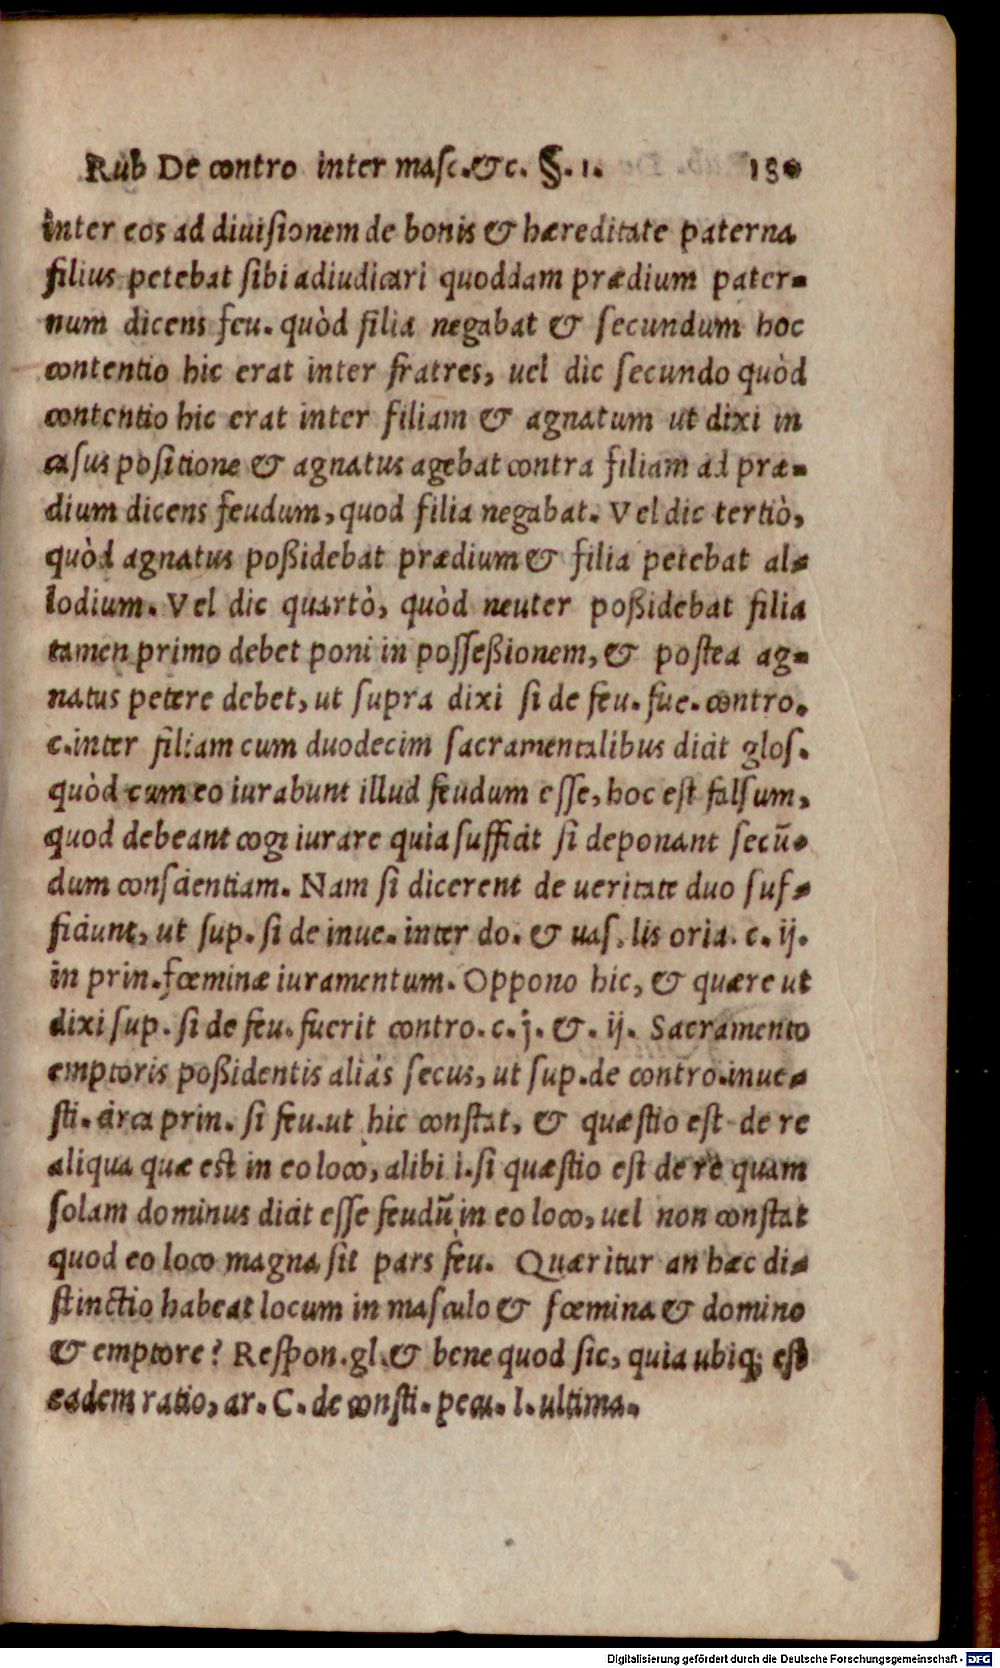 Rub De contro inter masc.&c. §. 1. 180
inter eos ad diuisionem de bonis & hæreditate paterna
filius petebat sibi adiudicari quoddam prædium pater-
num dicens feu. quòd filia negabat & secundum hoc
contentio hic erat inter fratres, uel dic secundo quòd
contentio hic erat inter filiam & agnatum ut dixi in
casus positione & agnatus agebat contra filiam ad præ-
dium dicens feudum, quod filia negabat. Vel dic tertiò,
quòd agnatus poßidebat prædium & filia petebat al-
lodium. Vel dic quartò, quòd neuter poßidebat filia
tamen primo debet poni in posseßionem, & postea ag-
natus petere debet, ut supra dixi si de feu. fue. contro.
c.inter filiam cum duodecim sacramentalibus dicit glos.
quòd cum eo iurabunt illud feudum esse, hoc est falsum,
quod debeant cogi iurare quia sufficit si deponant secū-
dum conscientiam. Nam si dicerent de ueritate duo suf-
ficiunt, ut sup. si de inue. inter do. & uas. lis oria. c. ij.
in prin. fœminæ iuramentum. Oppono hic, & quære ut
dixi sup. si de feu. fuerit contro. c. j. &. ij. Sacramento
emptoris poßidentis aliàs secus, ut sup. de contro.inue-
sti. circa prin. si feu.ut hic constat, & quæstio est de re
aliqua quæ est in eo loco, alibi i.si quæstio est de re quam
solam dominus dicit esse feudū in eo loco, uel non constat
quod eo loco magna sit pars feu. Quæritur an hæc di-
stinctio habeat locum in masculo & fœmina & domino
& emptore? Respon.gl.& bene quod sic, quia ubiq; est
eadem ratio, ar. C. de consti. pecu. l. ultima.
Digitalisierung gefördert durch die Deutsche Forschungsgemeinschaft - DFG